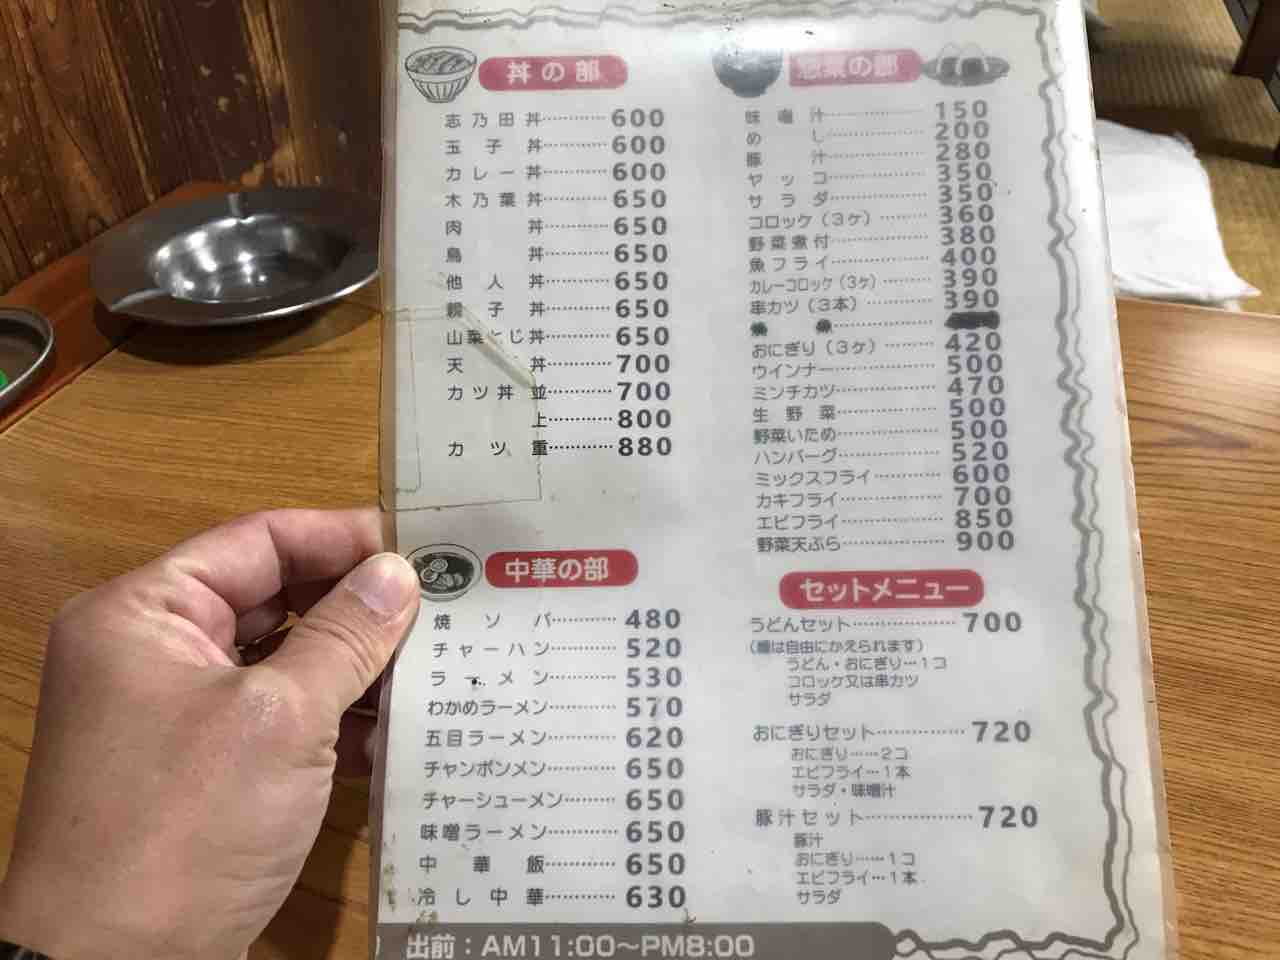 丼の部
志乃田丼 600
玉子丼 600
カレー丼 600
木乃葉丼 650
肉丼 650
鳥丼 650
他人丼 650
親子丼 650
山菜とじ丼 650
天丼 700
カツ丼 並 700
上 800
カツ重 880
中華の部
焼ソバ 480
チャーハン 520
ラーメン 530
わかめラーメン 570
五目ラーメン 620
チャンポンメン 650
チャーシューメン 650
味噌ラーメン 650
中華飯 650
冷し中華 630
惣菜の部
味噌汁 150
めし 200
豚汁 280
ヤッコ 350
サラダ 350
コロッケ(3ケ) 360
野菜煮付 380
魚フライ 400
カレーコロッケ(3ケ) 390
串カツ(3本) 390
おにぎり(3ケ) 420
ウインナー 500
ミンチカツ 470
生野菜 500
野菜いため 500
ハンバーグ 520
ミックスフライ 600
カキフライ 700
エビフライ 850
野菜天ぷら 900
セットメニュー
うどんセット 700
(麺は自由にかえられます)
うどん・おにぎり…1コ
コロッケ又は串カツ
サラダ
おにぎりセット 720
おにぎり……2コ
エビフライ…1本
サラダ・味噌汁
豚汁セット 720
豚汁
おにぎり……1コ
エビフライ…1本
サラダ
出前:AM11:00〜PM8:00